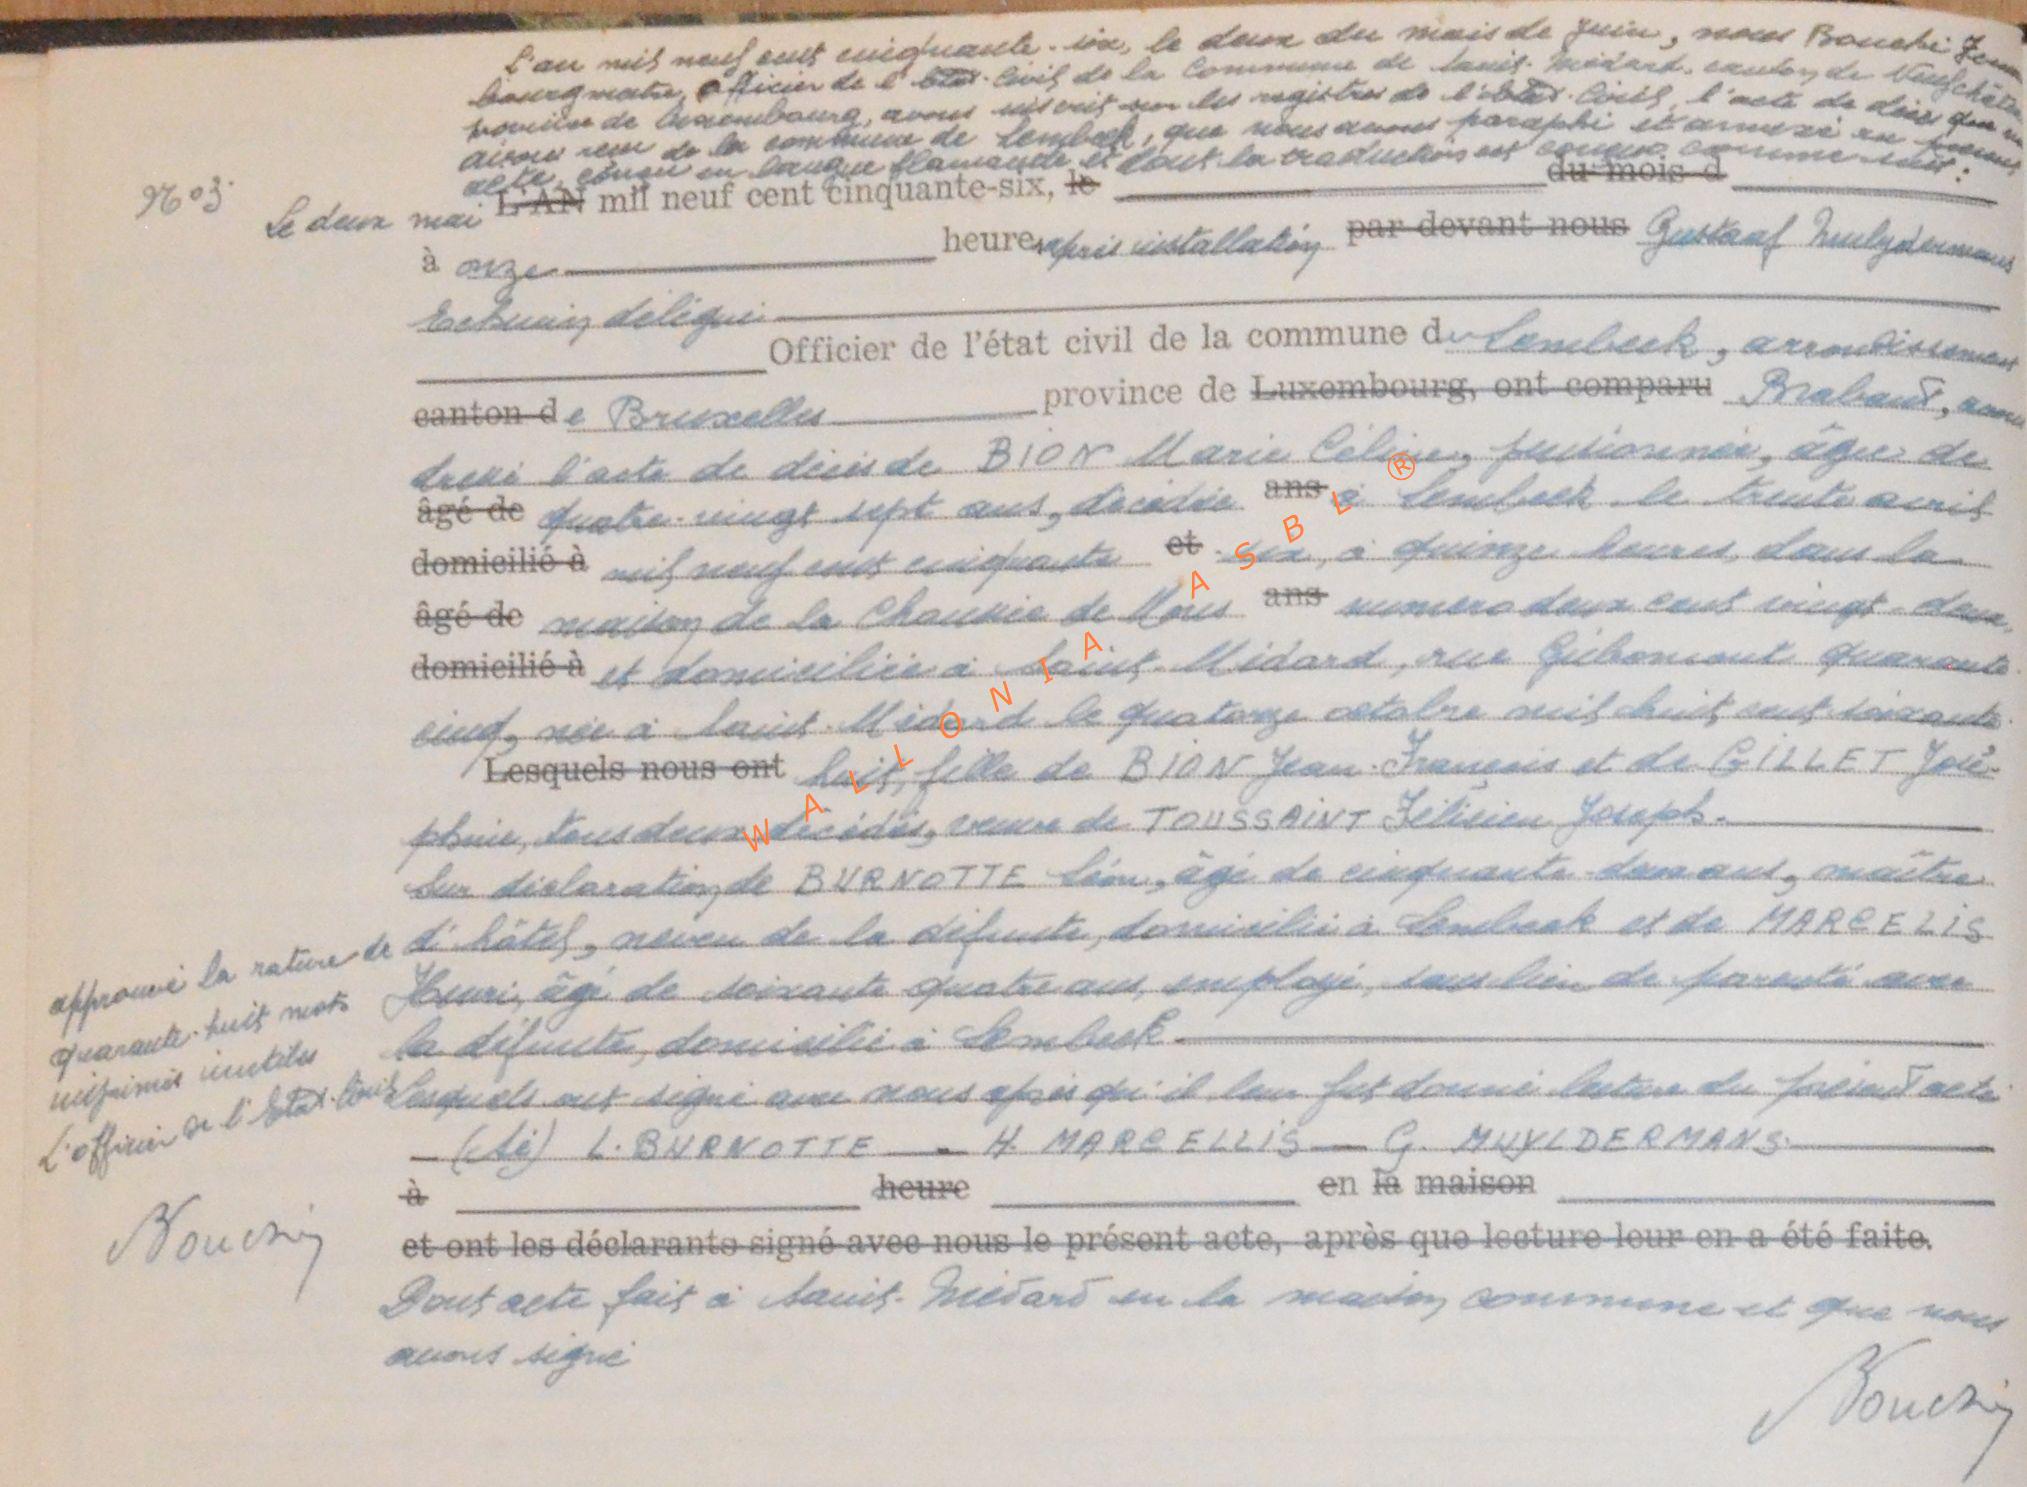 L'an mil neuf cent cinquante-six, le deux du mois de Juin, nous Bouché Jean
bourgmestre, Officier de l'Etat-Civil de la Commune de Saint-Médard, canton de Neufchâteau
province de Luxembourg, avons inscrit sur les registres de l'Etat-Civil, l'acte de décès que nous
avons reçu de la commune de Lembeek, que nous avons paraphé et annexé au présent
acte, conçu en langue flamande et dont la traduction est conçue comme suit :
N°3.
Le deux mai L'AN mil neuf cent cinquante-six, le du mois d
à onze heures après installation par devant nous Gustaaf Muyldermans
Echevin délégué
Officier de l'état civil de la commune de Lembeek, arrondissement
canton de Bruxelles province de Luxembourg, ont comparu Brabant, avons
dressé l'acte de décès de BION Marie Céline, pensionnée, âgée de
âgé de quatre-vingt sept ans, décédée ans à Lembeek le trente avril
domicilié à mil neuf cent cinquante et six, à quinze heures, dans la
âgé de maison de la Chaussée de Mons ans numéro deux cent vingt-deux,
domicilié à et domiciliée à Saint-Médard, rue Gribomont quarante
cinq, née à Saint-Médard le quatorze octobre mil huit cent soixante
Lesquels nous ont huit, fille de BION Jean-François et de GILLET José-
phine, tous deux décédés, veuve de TOUSSAINT Félicien Joseph.
Sur déclaration de BURNOTTE Léon, âgé de cinquante-deux ans, maître
d'hôtel, neveu de la défunte, domicilié à Lembeek et de MARCELIS
Henri, âgé de soixante quatre ans, employé, sans lien de parenté avec
la défunte, domicilié à Lembeek.
Lesquels ont signé avec nous après qu'il leur fut donné lecture du présent acte
(Sé) L. BURNOTTE - H. MARCELLIS - G. MUYLDERMANS.
à heure en la maison
et ont les déclarants signé avec nous le présent acte, après que lecture leur en a été faite.
Dont acte fait à Saint-Médard en la maison commune et que nous
avons signé
approuvé la rature de
quarante-huit mots
imprimés inutiles
L'officier de l'Etat-Civil
Bouché
Bouché
WALLONIA ASBL ®